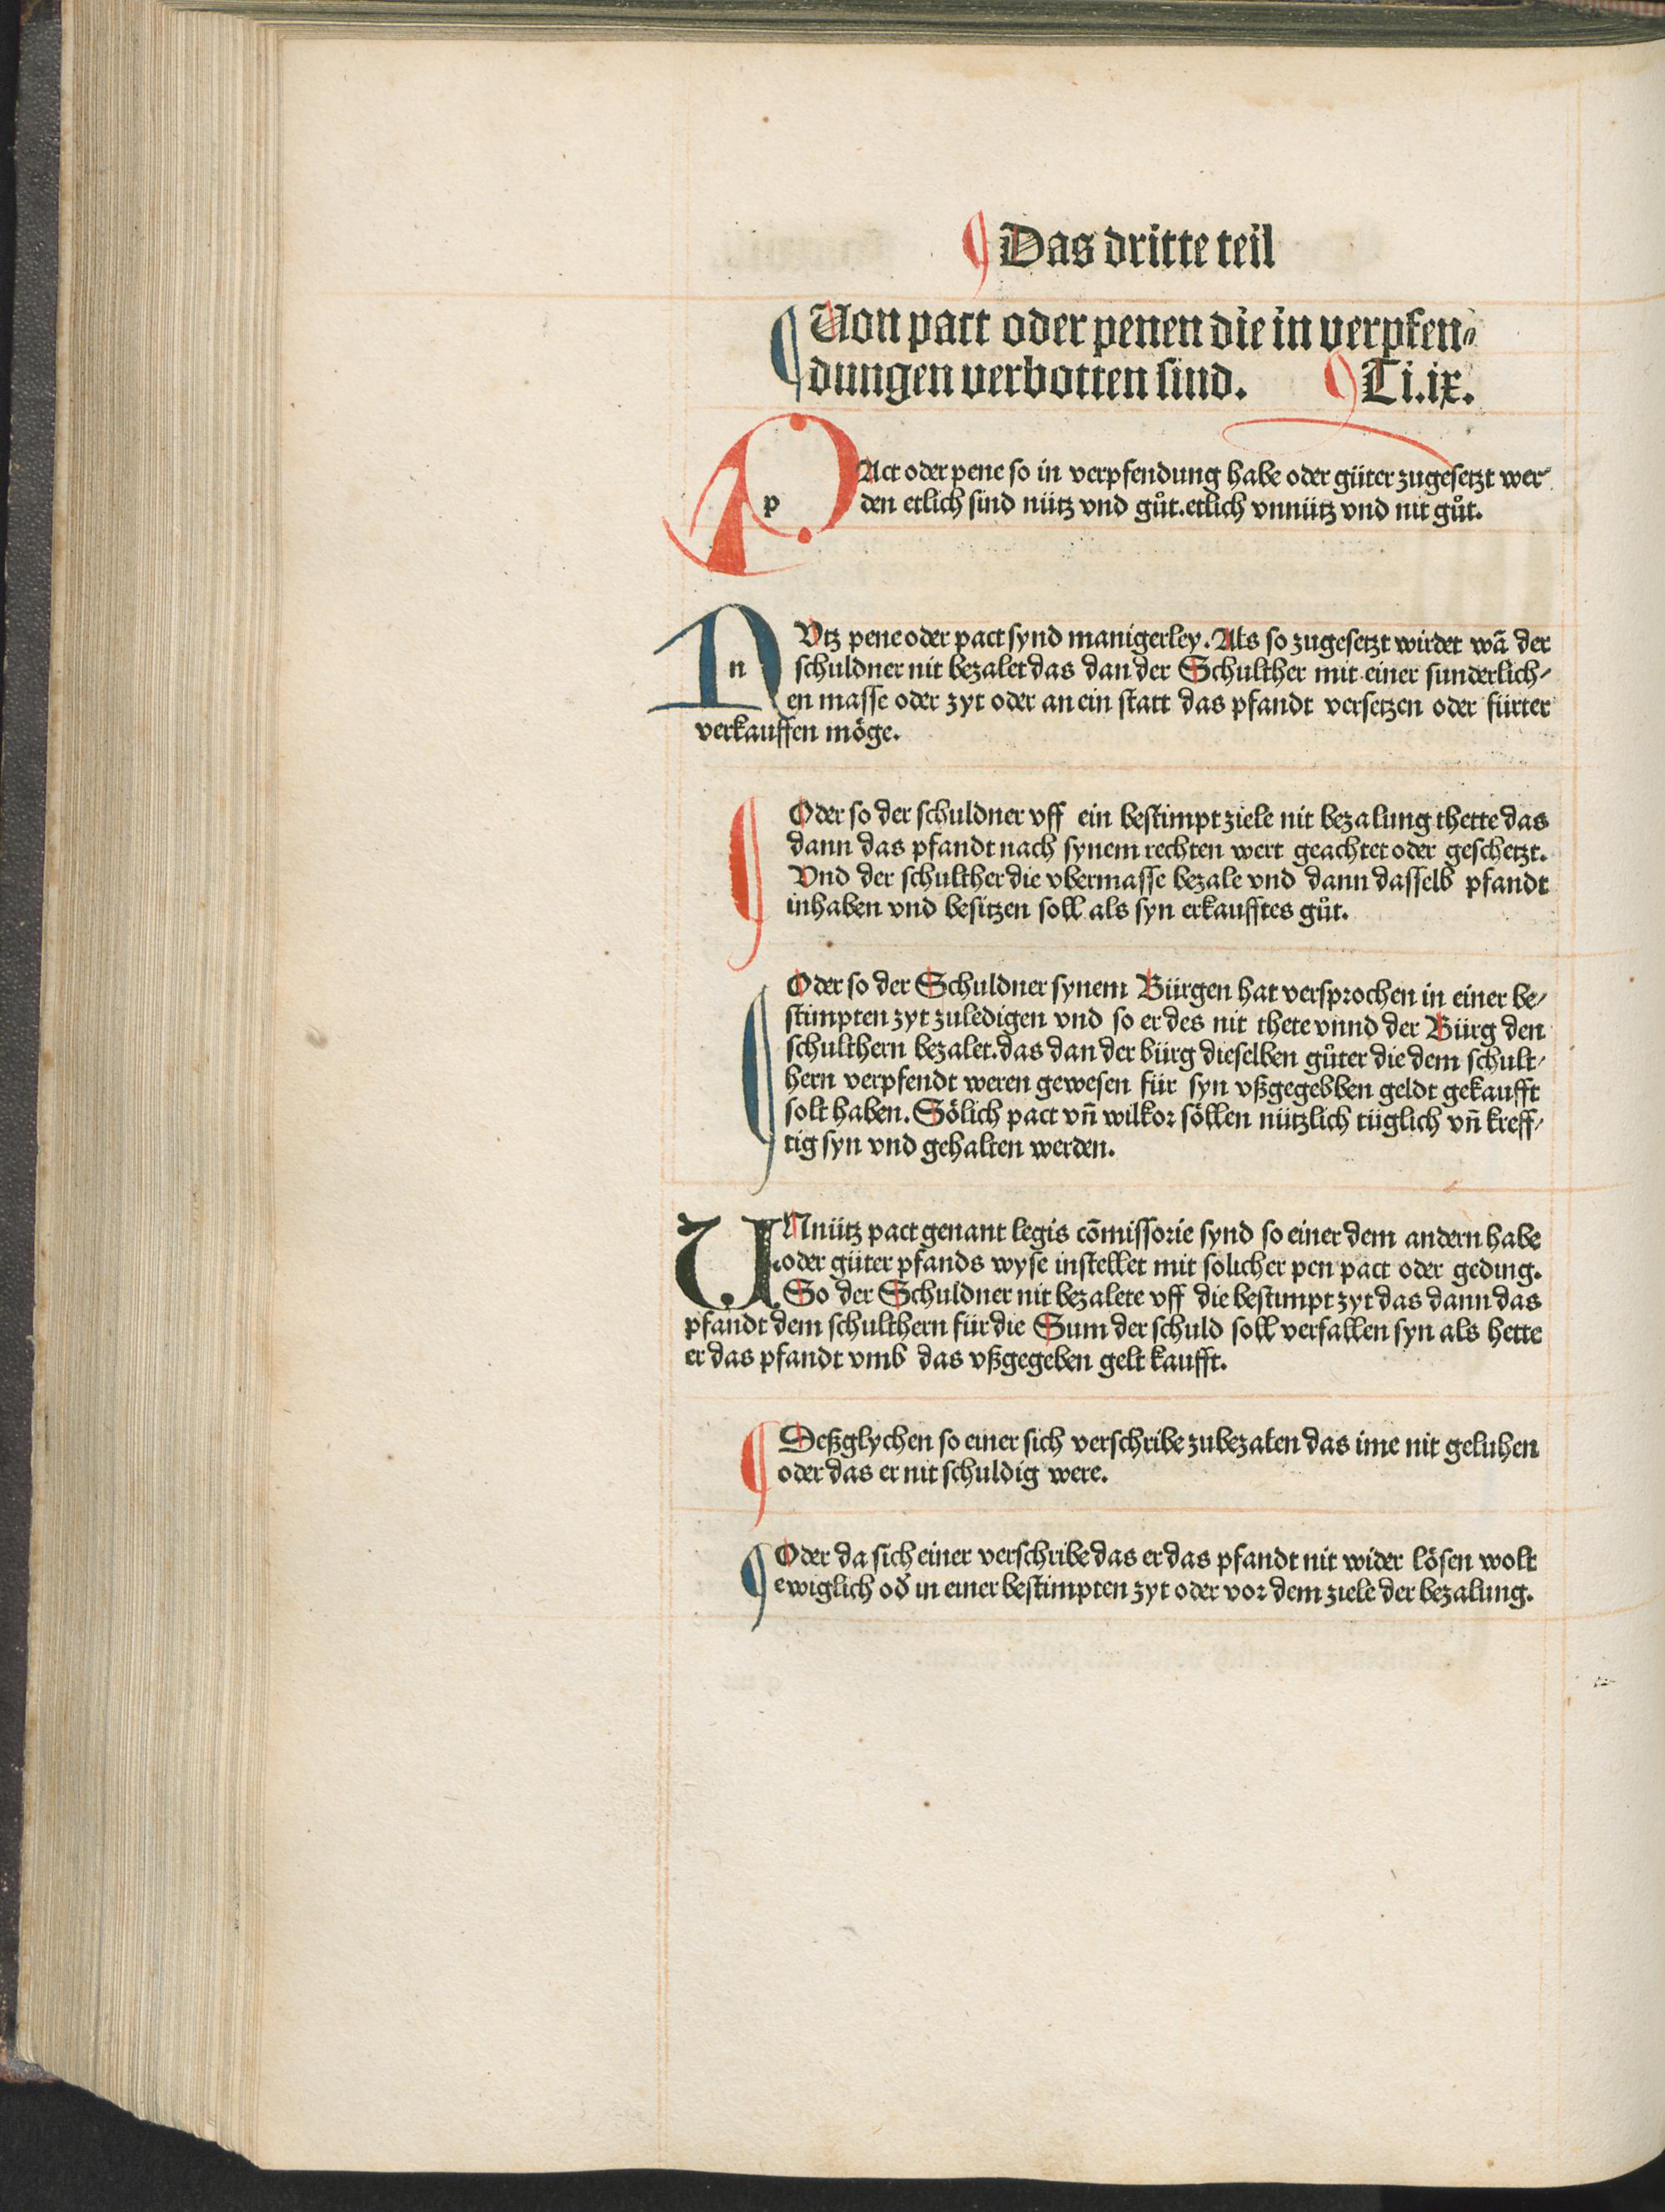 ¶ Das dritte teil
¶ Von pact oder penen die in verpfen⸗
dungen verbotten sind. ¶ Ti.ix.
PAct oder pene so in verpfendung habe oder güter zugesetzt wer⸗
den etlich sind nütz vnd gůt. etlich vnnütz vnd nit gůt.
NVtz pene oder pact synd manigerley. Als so zugesetzt wirdet wā der
schuldner nit bezalet das dan der Schulther mit einer sunderlich⸗
en masse oder zyt oder an ein statt das pfandt versetzen oder fürter
verkauffen möge.
¶ Oder so der schuldner vff ein bestimpt ziele nit bezalung thette das
dann das pfandt nach synem rechten wert geachtet oder geschetzt.
Vnd der schulther die vbermasse bezale vnd dann dasselb pfandt
inhaben vnd besitzen soll als syn erkaufftes gůt.
¶ Oder so der Schuldner synem Bürgen hat versprochen in einer be⸗
stimpten zyt zuledigen vnd so er des nit thete vnnd der Bürg den
schulthern bezalet. das dan der bürg dieselben gůter die dem schult⸗
hern verpfendt weren gewesen für syn vßgegebben geldt gekaufft
solt haben. Sölich pact vn̄ wilkor söllen nützlich tüglich vn̄ kreff⸗
tig syn vnd gehalten werden.
VNnütz pact genant legis cōmissorie synd so einer dem andern habe
oder güter pfands wyse instellet mit solicher pen pact oder geding.
So der Schuldner nit bezalete vff die bestimpt zyt das dann das
pfandt dem schulthern für die Sum der schuld soll verfallen syn als hette
er das pfandt vmb das vßgegeben gelt kaufft.
¶ Deßglychen so einer sich verschribe zubezalen das ime nit geluhen
oder das er nit schuldig were.
¶ Oder da sich einer verschribe das er das pfandt nit wider lösen wolt
ewiglich od̓ in einer bestimpten zyt oder vor dem ziele der bezalung.